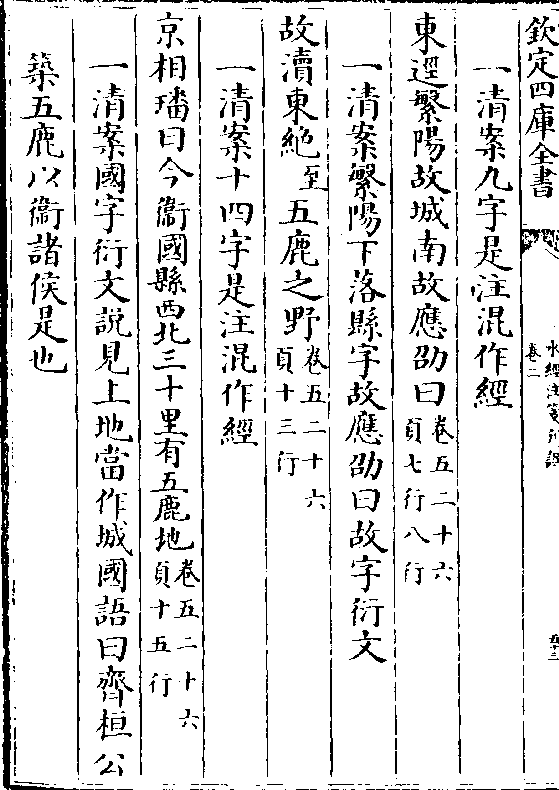 欽定四庫全書
水經注箋刊誤
卷二
五十三
一清案九字是注混作經
東逕繁陽故城南故應劭曰卷五二十六頁七行八行
一清案繁陽下落縣字故應劭曰故字衍文
故瀆東絶至五鹿之野卷五二十六頁十三行
一清案十四字是注混作經
京相璠曰今衞國縣西北三十里有五鹿地卷五二十六頁十五行
一清案國字衍文説見上地當作城國語曰齊桓公
築五鹿以衞諸侯是也